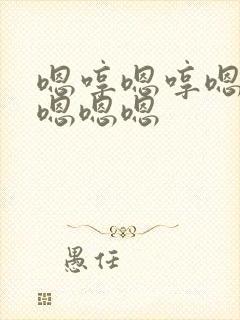 嗯哼嗯哼嗯
嗯嗯嗯
愚任